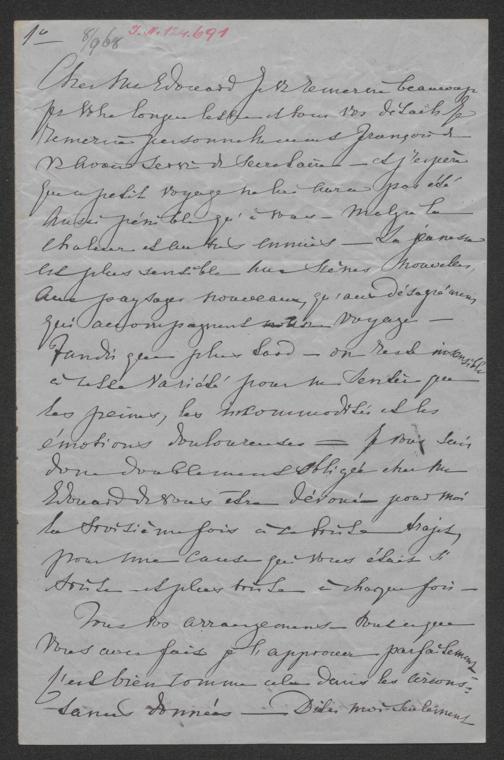 1o 8/968 I.N. 124.691
Cher Mr Edouard Je vs remercie beaucoup
pr votre longue lettre et tous vos détails Je
remercie personnellement François de
vs avoir servi de secretaire — et j'espère
que ce petit voyage ne lui aura pas été
aussi pénible qu'à vous — malgré la
chaleur et autres ennuies — La jeunesse
est plus sensible aux scènes nouvelles,
aux paysages nouveaux, qu'aux désagréments
qui accompagnent voyage —
Tandis que plus tard — on reste insensible
à cette variété pour ne sentir que
les peines, les incommodités et les
émotions douloureuses = Je vous suis
donc doublement obligée cher Mr
Edouard de vous être dévoué pour moi
la troisième fois à ce triste trajet,
pour une cause qui vous était si
triste et plus triste à chaque fois —
Tous vos arrangemens tout ce que
vous avez fait je l'approuve parfaitement
c'est bien comme cela dans les circons=
tances données — Dites moi seulement